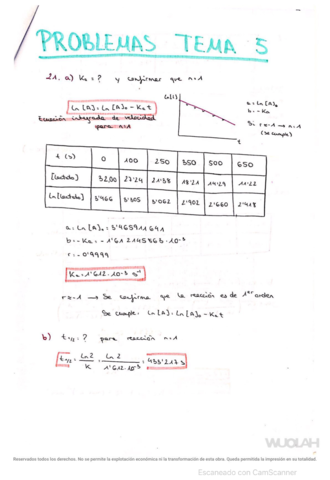 PROBLEMAS TEMA 5
21. a) Ka = ? y confirmar que n=1
ln [A] = ln [A]₀ - Ka t
Ecuación integrada de velocidad
para n=1
t
a = ln [A]₀
b = -Ka
Si r≈-1 → n=1
(se cumple)
t (s) 0 100 250 350 500 650
[lactato] 32,00 27'24 21'38 18'21 14'29 11'22
ln [lactato] 3'466 3'305 3'062 2'902 2'660 2'418
a = ln [A]₀ = 3'465911641
b = -Ka = -1'612145863·10⁻³
r = -0'9999
Ka = 1'612·10⁻³ s⁻¹
r≈-1 → Se confirma que la reacción es de 1er orden
Se cumple: ln [A] = ln [A]₀ - Ka t
b) t₁/₂ = ? para reacción n=1
t₁/₂ = ln2 / K = ln 2 / 1'612·10⁻³ = 433'217 s
WUOLAH
Reservados todos los derechos. No se permite la explotación económica ni la transformación de esta obra. Queda permitida la impresión en su totalidad.
Escaneado con CamScanner